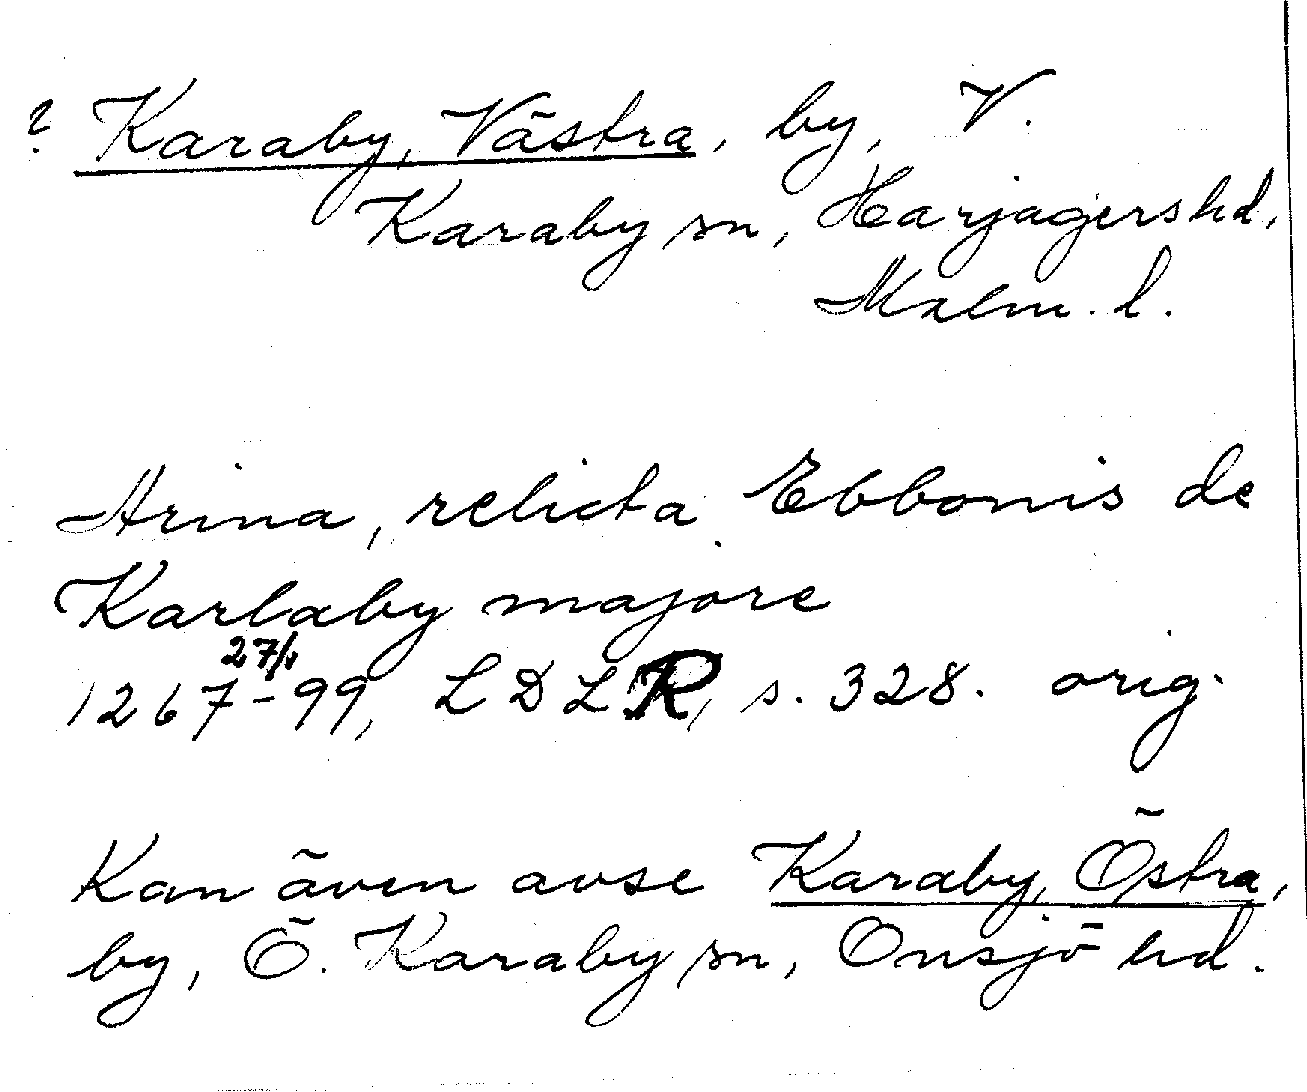 ? Karaby, Västra, by, V.
Karaby sn, Harjagers hd,
Malm. l.
Arina, relicta Ebbonis de
Karlaby majore
27/1
1267-99, LDLR, s. 328. orig.
Kan även avse Karaby, Östra,
by, Ö. Karaby sn, Onsjö hd.